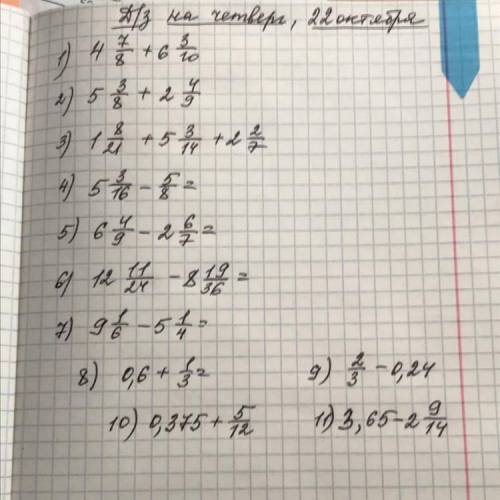 Д/з на четверг, 22 октября
1) 4 7/8 + 6 3/10
2) 5 3/8 + 2 4/9
3) 1 8/21 + 5 3/14 + 2 2/7
4) 5 3/16 - 5/8 =
5) 6 4/9 - 2 6/7 =
6) 12 11/24 - 8 19/36 =
7) 9 1/6 - 5 1/4 =
8) 0,6 + 1/3 = 9) 2/3 - 0,24
10) 0,375 + 5/12 11) 3,65 - 2 9/14